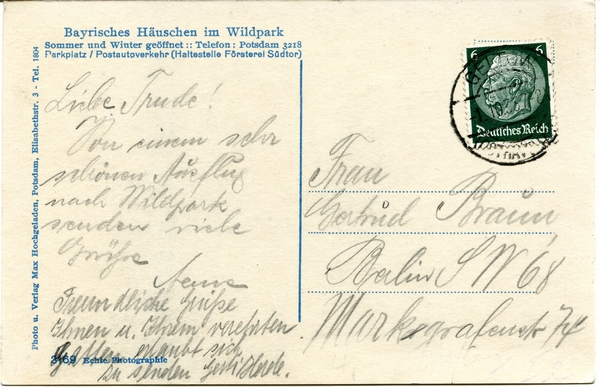 Bayrisches Häuschen im Wildpark
Sommer und Winter geöffnet :: Telefon: Potsdam 3218
Parkplatz / Postautoverkehr (Haltestelle Försterei Südtor)
Photo u. Verlag Max Hochgeladen, Potsdam, Elisabethstr. 3 - Tel. 1804
Liebe Trude!
Von einem sehr
schönen Ausflug
nach Wildpark
senden viele
Grüße
Freundliche Grüße
Ihnen u. Ihrem verehrten
Gatten erlaubt sich
zu senden
3169 Echte Photographie
6 6
Deutsches Reich
Frau
Gertrud Braun
Berlin SW 68
Markgrafenstr 74